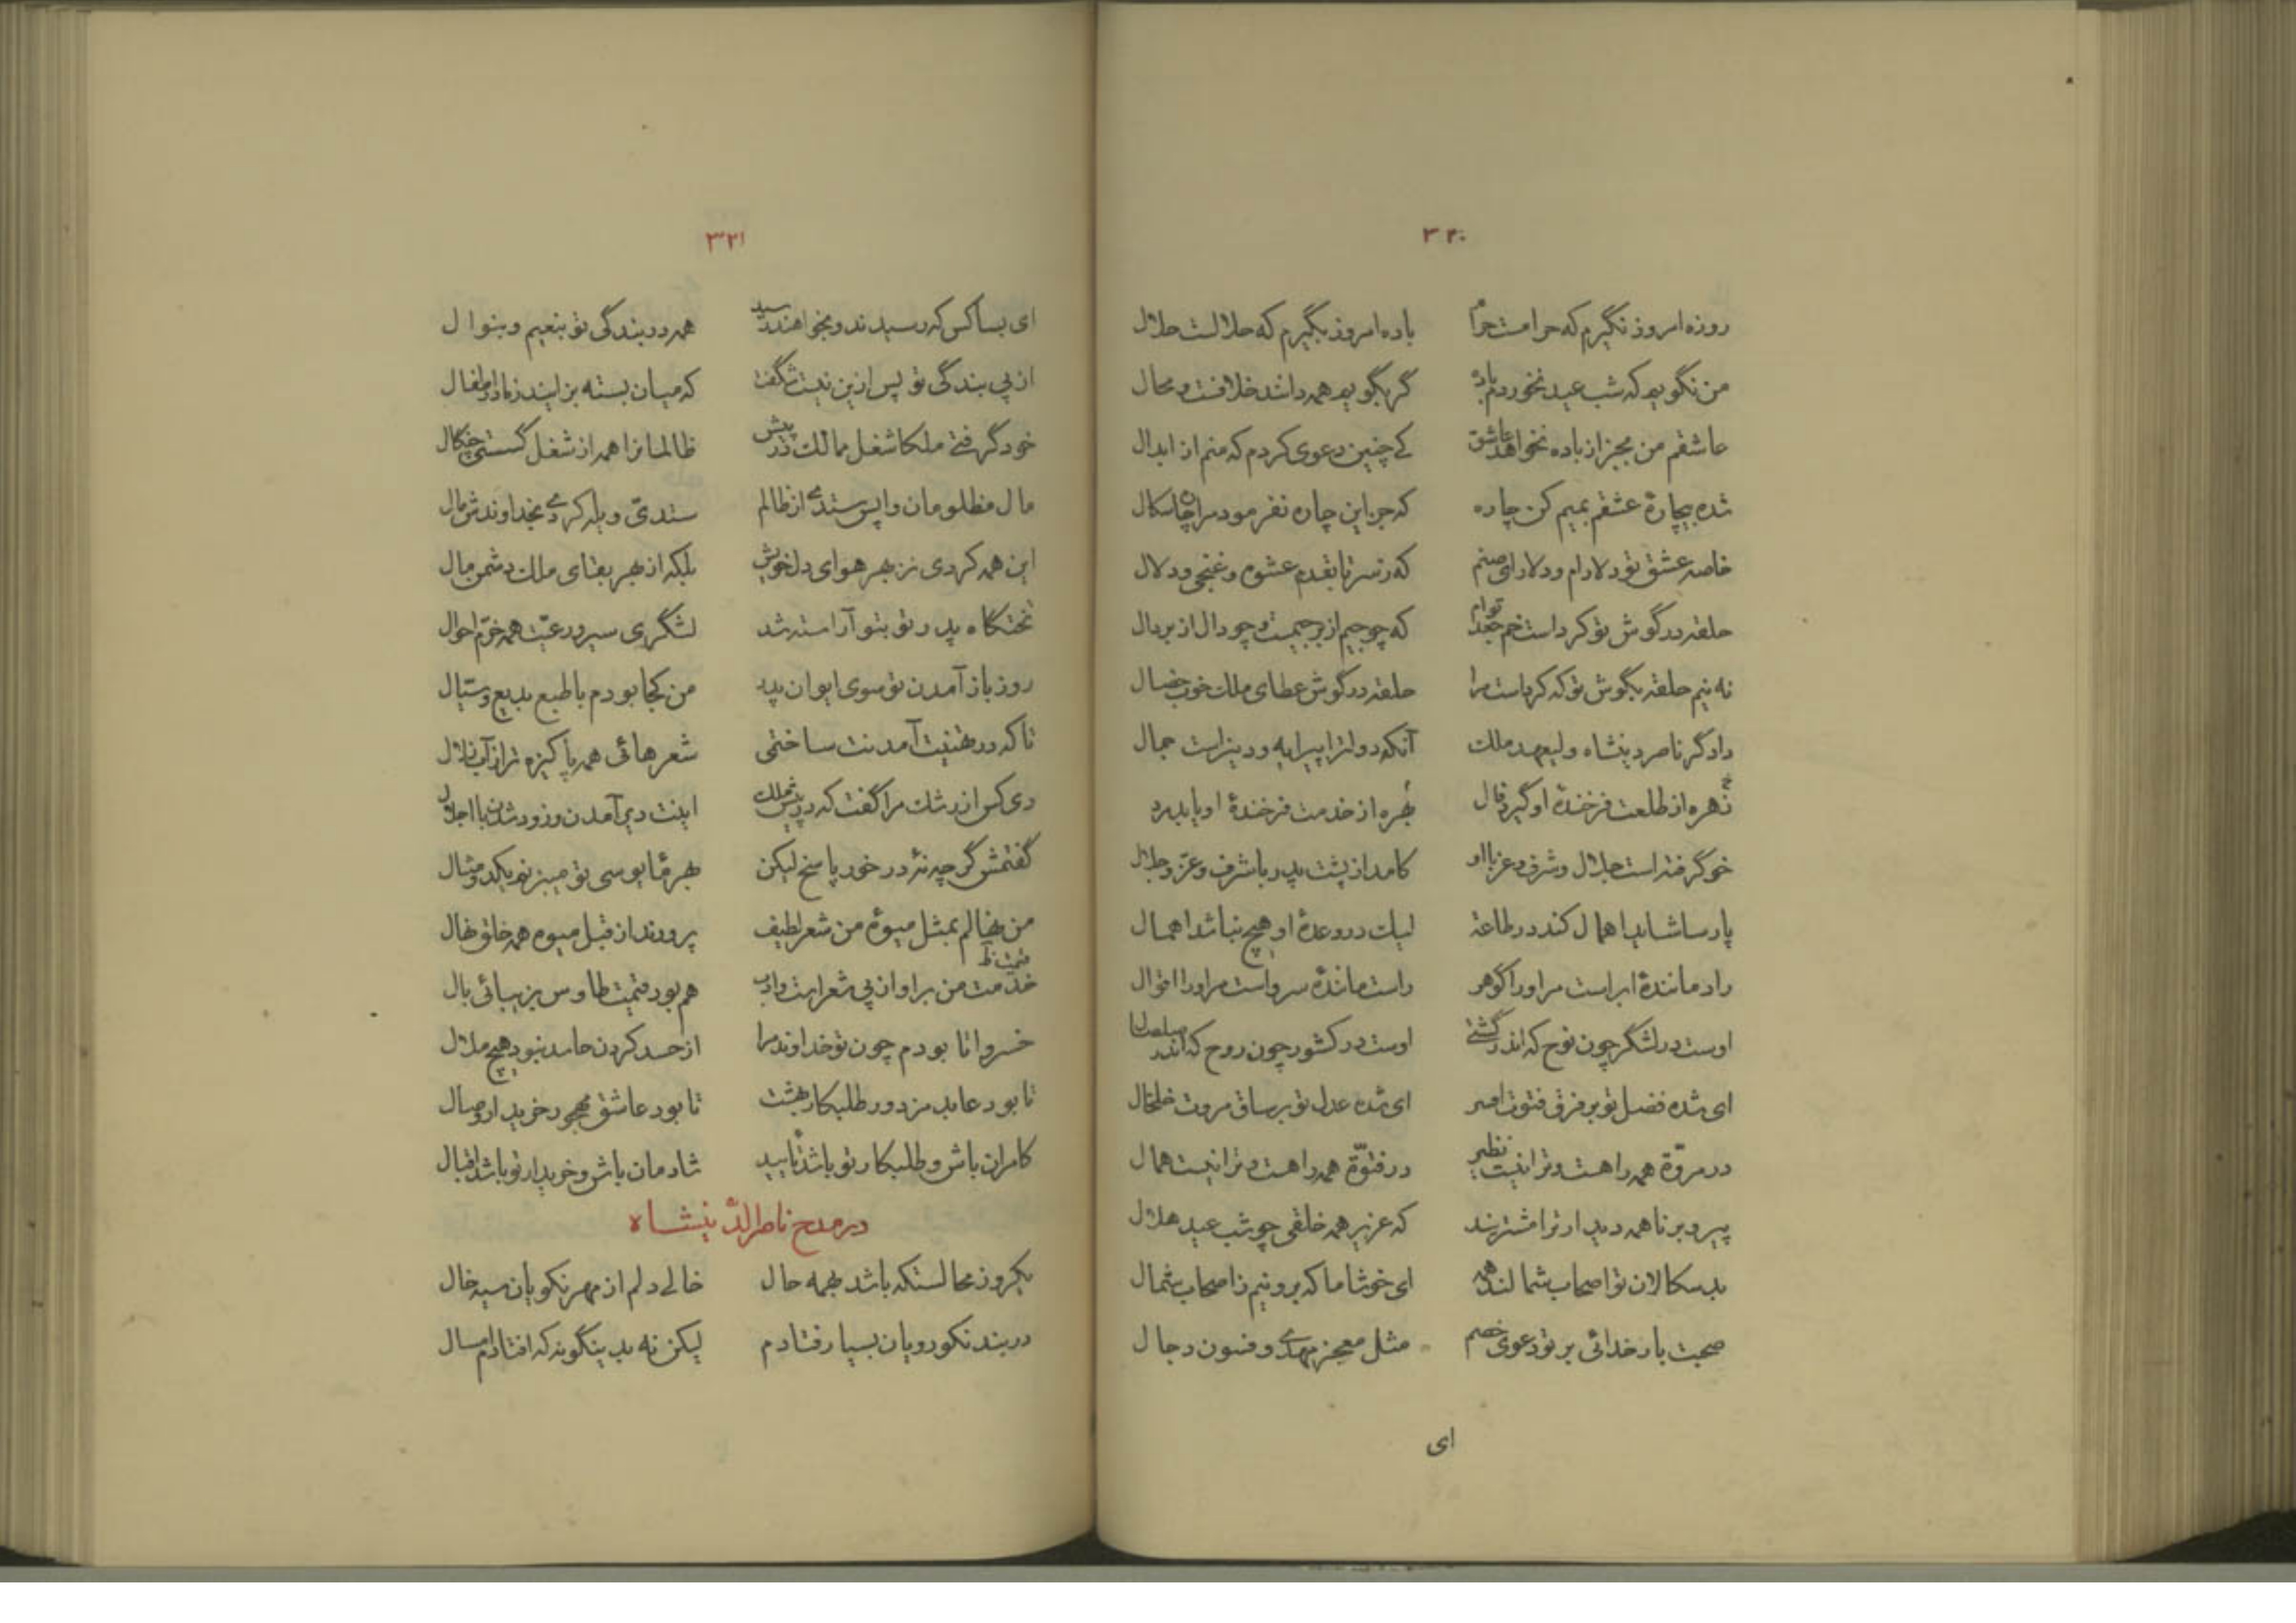 ۳۲۰
روزه امروز نگیرم که حرامست حرام باده امروز بگیرم که حلالست حلال
من نگویم که شب عید نخوردم باده گر بگویم همه دانند خلافست و محال
عاشقم من بجز از باده نخواهد عاشق کی چنین دعوی کردم که منم از ابدال
شده بیچارهٔ عشقم بمیم کن چاره که جز این چاره نفرمود مرا چاره سکال
خاصه عشق تو دلارام و دلارای صنم که ز سر تا بقدم عشوه و غنجی و دلال
حلقه در گوش تو کرداست خم جعد توام که چو جیم از بر جیمست و چو دال از بر دال
نه نیم حلقه بگوش تو که کرداست مرا حلقه در گوش عطای ملک خوب خصال
دادگر ناصر دینشاه ولیعهد ملک آنکه دولترا پیرایه و دینراست جمال
زهره از طلعت فرخندهٔ او گیرد فال بهره از خدمت فرخندهٔ او یابد
خو گرفته است جلال و شرف و عز با او کامد از پشت پدر با شرف و عز و جلال
پارسا شاید اهمال کند در طاعة لیک در وعدهٔ او هیچ نباشد اهمال
راد مانندهٔ ابراست مر او را گوهر راست مانندهٔ سرواست مر او را اقوال
اوست در لشگر چون نوح که اندر کشتی اوست در کشور چون روح که اندر صلصال
ای شده فضل تو بر فرق فتوت افسر ای شده عدل تو بر ساق مروت خلخال
در مروّة همه را هست و ترا نیست نظیر در فتوّة همه را هست و ترا نیست همال
پیر و برنا همه دیدار ترا مشتریند که عزیز همه خلقی چو شب عید هلال
بدسکالان تو اصحاب شمالند همه ای خوشا ما که برونیم ز اصحاب شمال
صحبت بار خدائی بر تو دعوی خصم مثل معجز مهدی و فسون دجال
ای
۳۲۱
ای بسا کس که رسیدند و بخواهند رسید همه در بندگی تو بنعیم و بنوال
از پی بندگی تو پس ازین نیست شگفت که میان بسته بزایند ز مادر اطفال
خود گرفتی ملکا شغل ممالک در پیش ظالمانرا همه از شغل گسستی چنکال
مال مظلومان واپس ستدی از ظالم ستدی و یله کردی بخداوندش مال
این همه کردی نز بهر هوای دل خویش بلکه از بهر بقای ملک دشمن مال
تختگاه پدر تو بتو آراسته شد لشگری سیر و رعیّت همه خرّم احوال
روز باز آمدن تو سوی ایوان پدر من کجا بودم با طبع بدیع و سیّال
تا که در تهنیت آمدنت ساختمی شعرهائی همه پاکیزه تر از آب زلال
دی کس از رشک مرا گفت که در پیش ملک اینت دیر آمدن و زود شدن با اجلال
گفتمش گرچه نهٔ در خور پاسخ لیکن بهر پابوسی تو میزنم یکدو مثال
من نهالم بمثل میوهٔ من شعر لطیف پرورند از قبل میوه همه خلق نهال
خدمت من بر او از پی شعراست و ادب هم بود قیمت طاوس بزیبائی بال
خسروا تا بودم چون تو خداوند مرا از حسد کردن حاسد نبود هیچ ملال
تا بود عابد مزدور طلبکار بهشت تا بود عاشق مهجور خریدار وصال
کامران باش و طلبکار تو باشد تأیید شادمان باش و خریدار تو باشد اقبال
در مدح ناصرالدّینشاه
یکروز محالستکه باشد بهمه حال خالی دلم از مهر نکویان سیه خال
در بند نکورویان بسیار فتادم لیکن نه بدینگونه که افتادم امسال